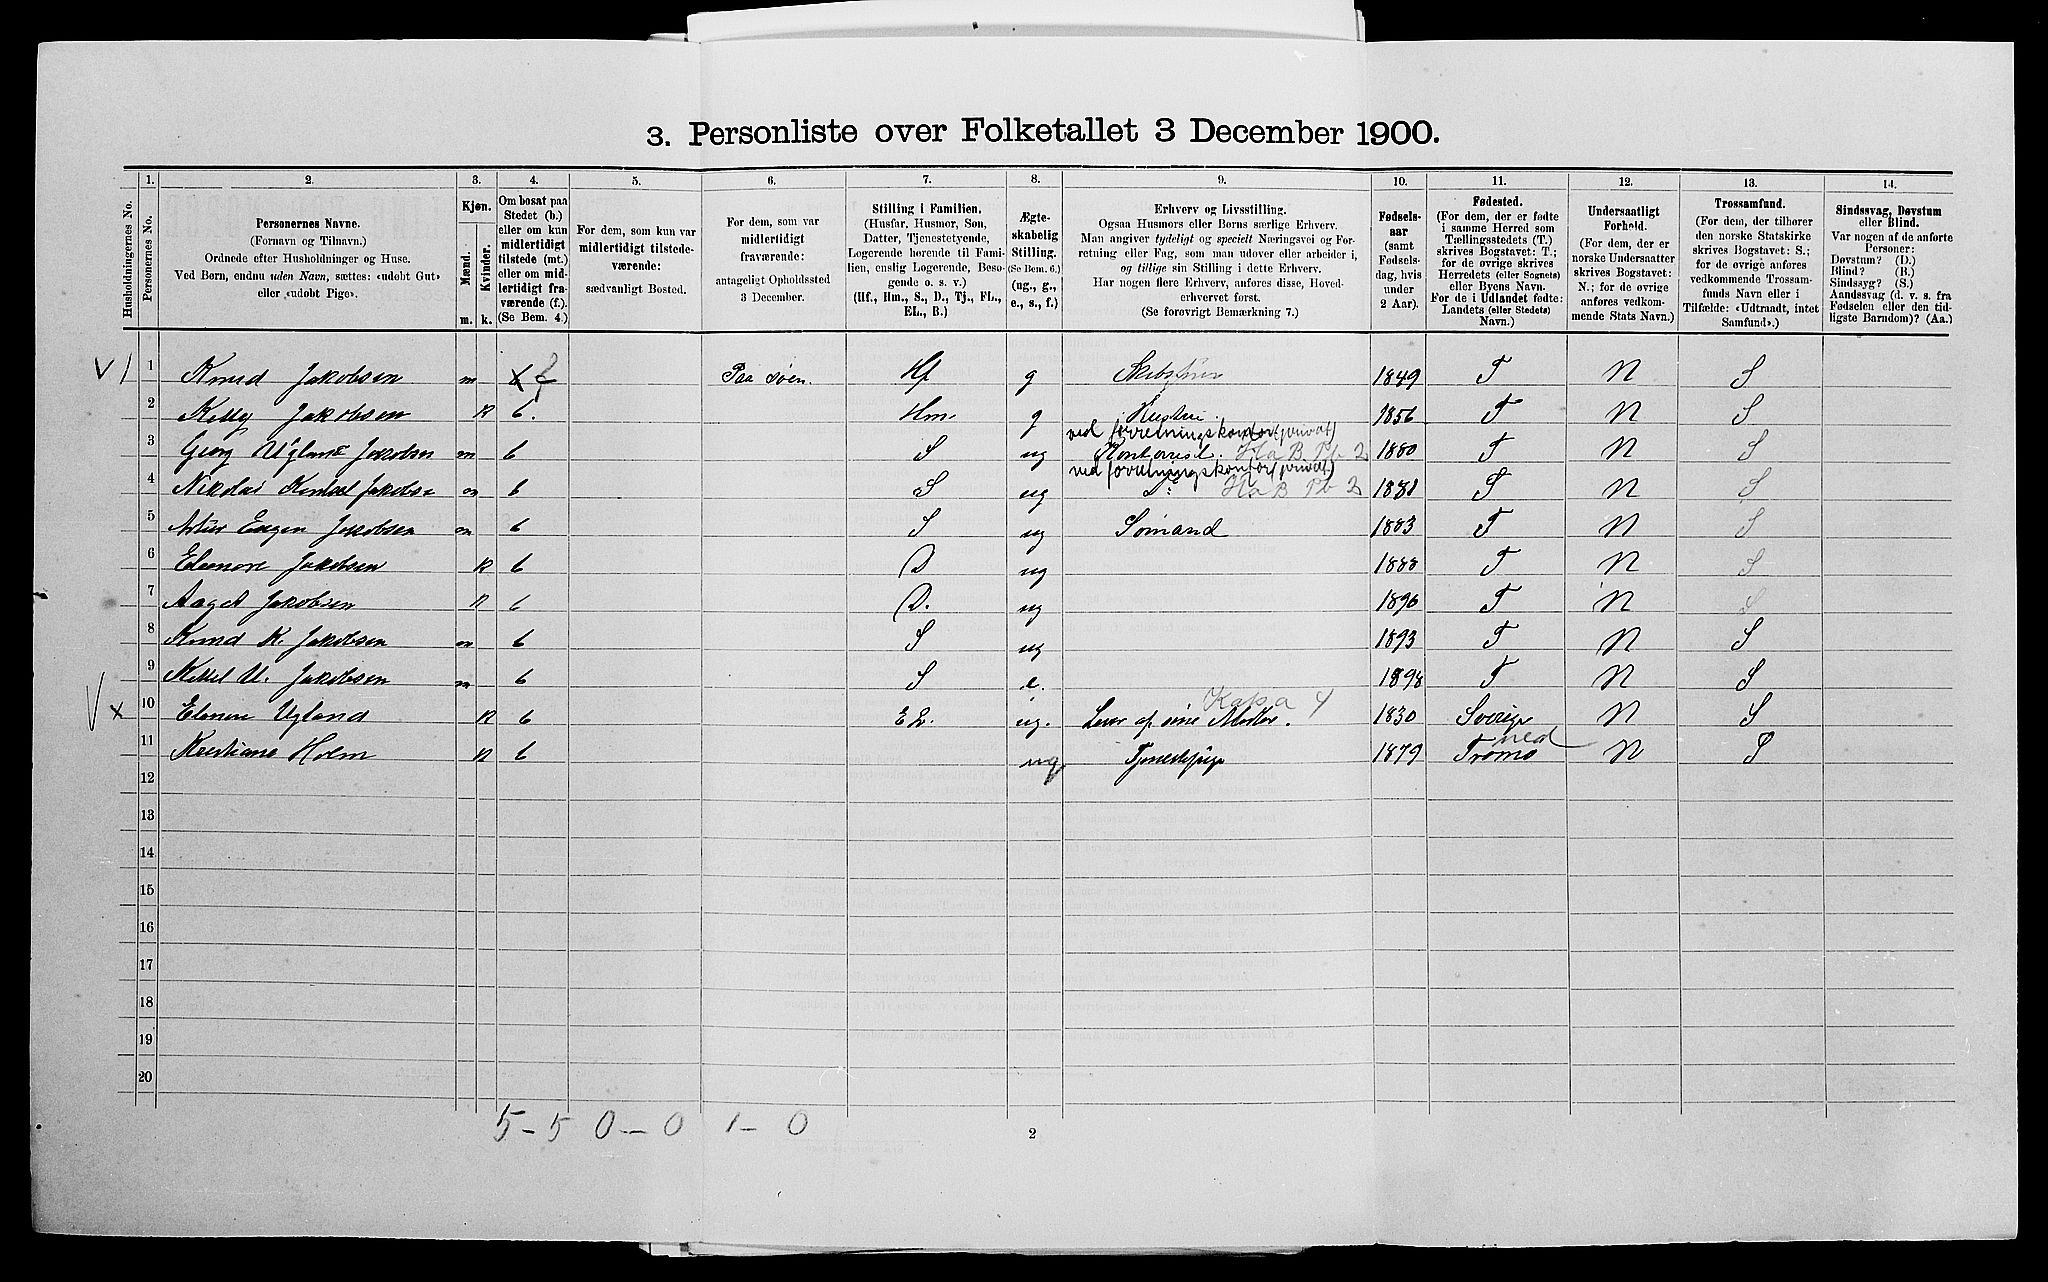 3. Personliste over Folketallet 3 December 1900.
Husholdningernes No.
1.
Personernes No.
2.
Personernes Navne.
(Fornavn og Tilnavn.)
Ordnede efter Husholdninger og Huse.
Ved Børn, endnu uden Navn, sættes: «udøbt Gut»
eller «udøbt Pige».
3.
Kjøn.
Mænd.
Kvinder.
m. k.
4.
Om bosat paa
Stedet (b.)
eller om kun
midlertidigt
tilstede (mt.)
eller om mid-
lertidigt fra-
værende (f.).
(Se Bem. 4.)
5.
For dem, som kun var
midlertidigt tilstede-
værende:
sædvanligt Bosted.
6.
For dem, som var
midlertidigt
fraværende:
antageligt Opholdssted
3 December.
7.
Stilling i Familien.
(Husfar, Husmor, Søn,
Datter, Tjenestetyende,
Logerende hørende til Fami-
lien, enslig Logerende, Besø-
gende o. s. v.)
(Hf., Hm., S., D., Tj., FL.,
EL., B.)
8.
Ægte-
skabelig
Stilling.
(Se Bem. 6.)
(ug., g.,
e., s., f.)
9.
Erhverv og Livsstilling.
Ogsaa Husmors eller Børns særlige Erhverv.
Man angiver tydeligt og specielt Næringsvei og For-
retning eller Fag, som man udover eller arbeider i,
og tillige sin Stilling i dette Erhverv.
Har nogen flere Erhverv, anføres disse, Hoved-
erhvervet først.
(Se forøvrigt Bemærkning 7.)
10.
Fødsels-
aar
(samt
Fødsels-
dag, hvis
under
2 Aar).
11.
Fødested.
(For dem, der er fødte
i samme Herred som
Tællingsstedets (T.)
skrives Bogstavet: T.;
for de øvrige skrives
Herredets (eller Sognets)
eller Byens Navn.
For de i Udlandet fødte:
Landets (eller Stedets)
Navn.)
12.
Undersaatligt
Forhold.
(For dem, der er
norske Undersaatter
skrives Bogstavet:
N.; for de øvrige
anføres vedkom-
mende Stats Navn.)
13.
Trossamfund.
(For dem, der tilhører
den norske Statskirke
skrives Bogstavet: S.;
for de øvrige anføres
vedkommende Trossam-
funds Navn eller i
Tilfælde: «Udtraadt, intet
Samfund».)
14.
Sindssvag, Døvstum
eller Blind.
Var nogen af de anførte
Personer:
Døvstum? (D.)
Blind? (B.)
Sindssyg? (S.)
Aandssvag (d. v. s. fra
Fødselen eller den tid-
ligste Barndom)? (Aa.)
1 Knud Jakobsen m Paa søen. Hf g 1849 T N S
2 Kelly Jakobsen k b. Hm. g Hustru. 1856 T N S
ved forretningskontor (privat)
3 Georg Ugland Jakobsen m b S ug Kontorist. 1880 T N S
ved forretningskontor (privat)
4 Nikolai Jakobse m b S ug 1881 T N S
5 Artur Eugen Jakobsen m b S ug Sømand 1883 T N S
6 Eleonore Jakobsen k b D ug 1888 T N S
7 Aagot Jakobsen k b D. ug 1896 T N S
8 Knud K. Jakobsen m b S ug 1893 T N S
9 Kittel U. Jakobsen m b S e. 1898 T N S
Kapa 4
10 Elenore Ugland k b EL. ug. Lever af sine Midler. 1830 Sverige N S
ned
11 Kristiane Holm k b ug Tjenestepige 1879 Tromø N S
12
13
14
15
16
17
18
19
20
5 - 5 0 - 0 1 - 0
2